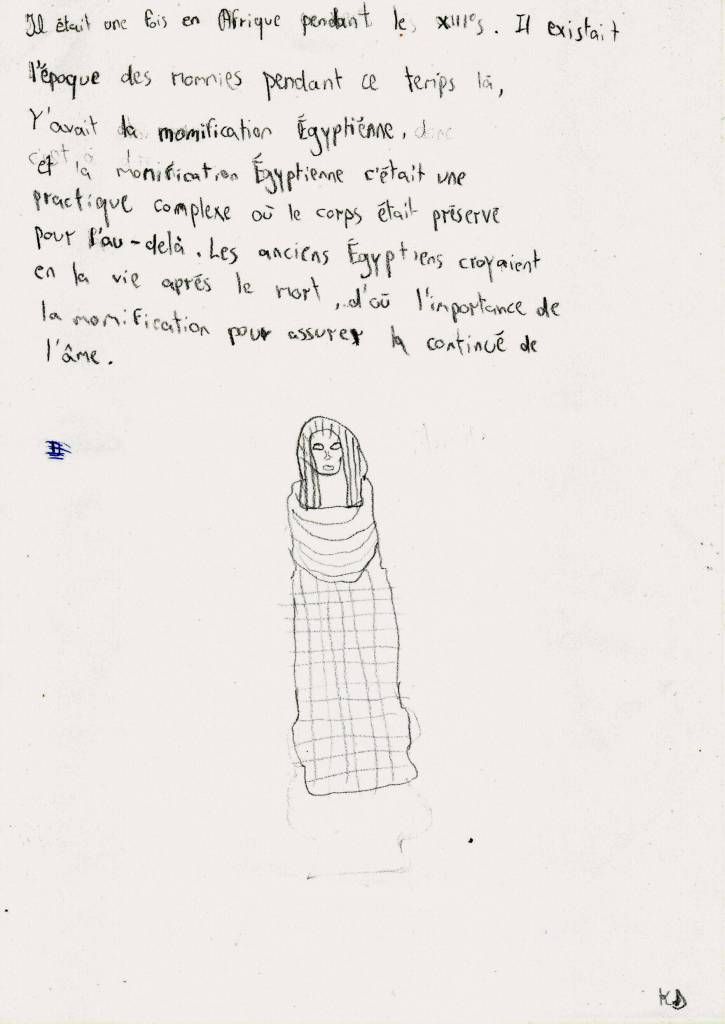 Il était une fois en Afrique pendant les XIIIe s. Il existait
l'époque des momies pendant ce temps là,
Y'avait la momification Égyptiénne,
et la momification Égyptienne c'était une
practique complexe où le corps était préservé
pour l'au-delà. Les anciens Égyptiens croyaient
en la vie aprés le mort, d'où l'importance de
la momification pour assurer la continué de
l'âme.
KD